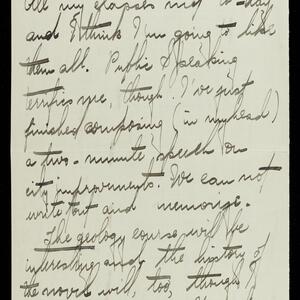 All my classes met to-day,
and I think I'm going to like
them all. Public Speaking
terrifies me, though I've just
finished composing (in my head)
a two-minute speech on
city improvements. We can not
write out and memorize.
The geology course will be
interesting and the history of
the novel will, too, though I